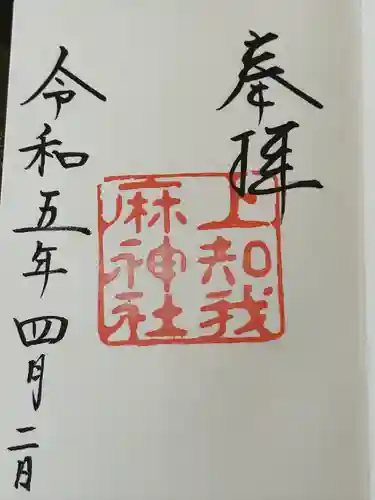 奉拝
上知我
麻神社
令和五年四月二日